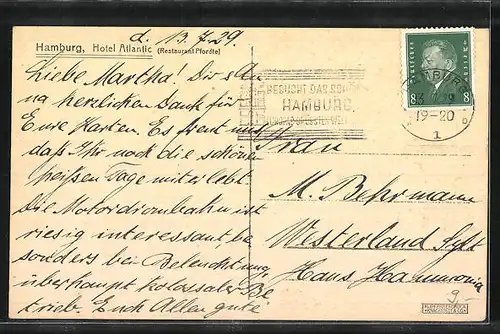 d. 13.7.29.
Hamburg, Hotel Atlantic (Restaurant Pfordte)
Liebe Martha! Dir & An
na herzlichen Dank für
Eure Karten. Es freut uns
daß Ihr noch die schönen
heißen Tage miterlebt.
Die Motordromb ahn ist
riesig interessant be
sonders bei Beleuchtung,
überhaupt kolossaler Be
trieb. Euch Allen gute
BESUCHT DAS SCHÖNE
HAMBURG
Deutsches Reich
8 8
HAMBURG
13.7.29
19-20
1
Frau
M. Behrmann
Westerland Sylt
Haus Hammonia
9.-